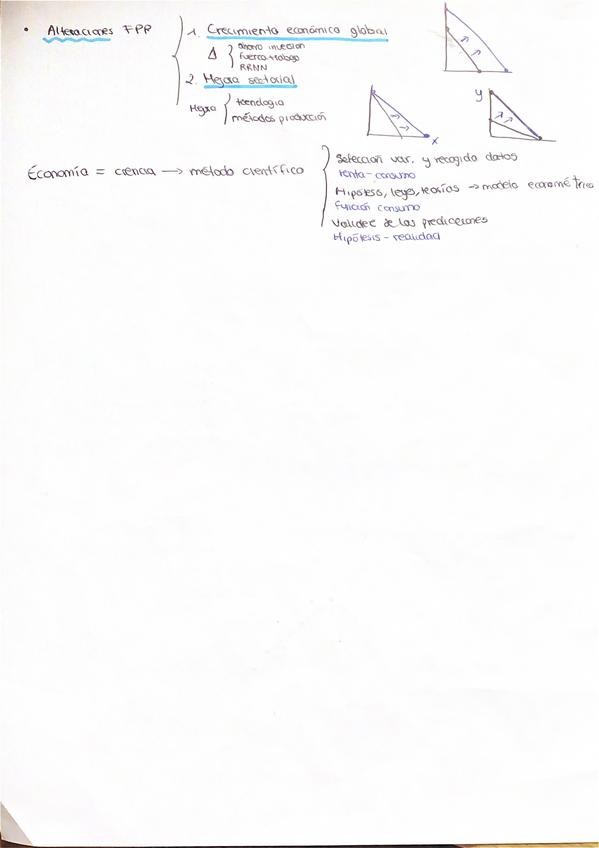 • Alteraciones FPP
1. Crecimiento económico global
Δ
ahorro inversion
fuerza trabajo
RRNN
2. Mejora sectorial
Mejora
tecnología
métodos producción
x
y
Economía = ciencia → método científico
Selección var. y recogida datos
renta - consumo
Hipótesis, leyes, teorías → modelo econométrico
Función consumo
Validez de las predicciones
Hipótesis - realidad